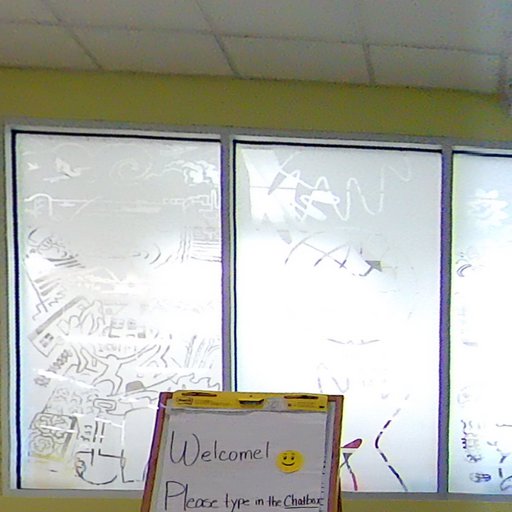 Welcome!
Please type in the Chatbox